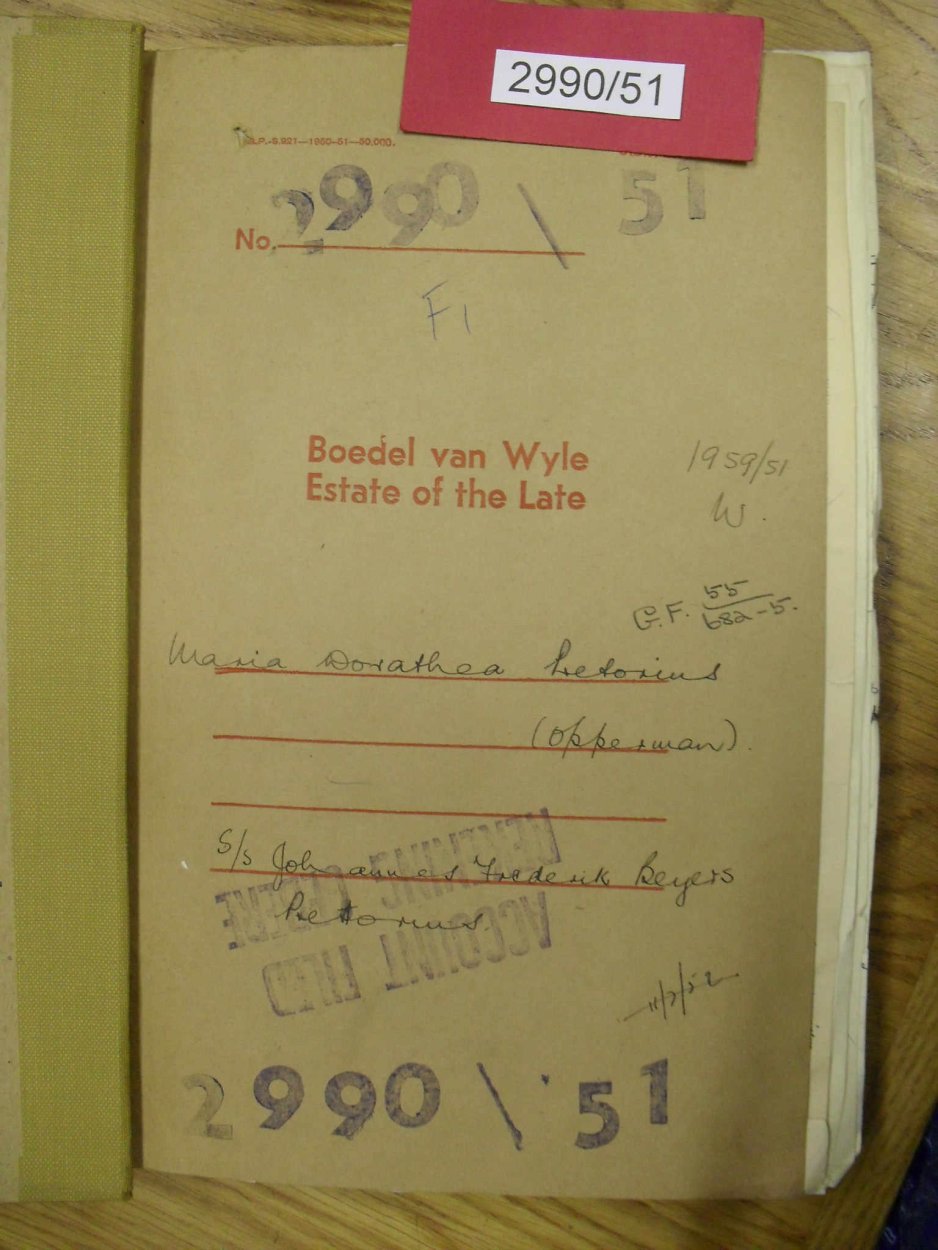 2990/51
G.P.-S.921—1950-51—50,000.
2990 \ 51
No.
F1
Boedel van Wyle
Estate of the Late
1959/51
W.
G.F. 55
682-5.
Maria Dorathea Pretorius
(Opperman).
S/s Johannes Frederik Beyers
Pretorius.
REKENING GELIASSEER
ACCOUNT FILED
11/7/52
2990 \ 51